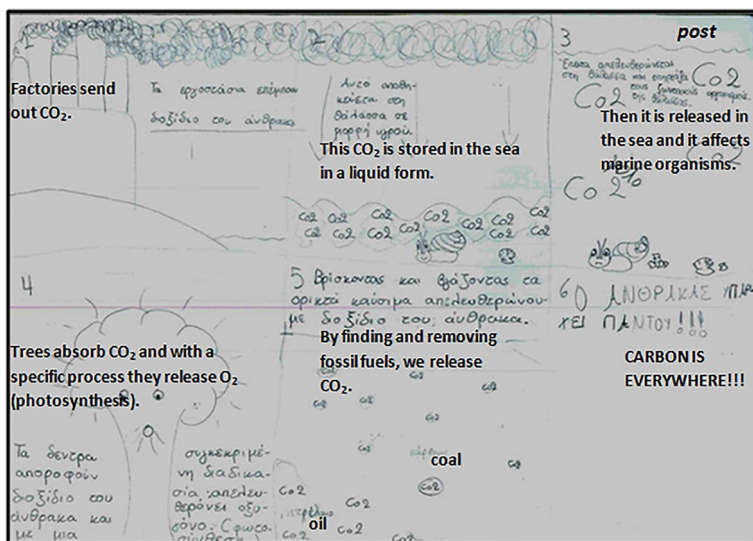 1
Factories send
out CO₂.
Τα εργοστάσια εκπέμπουν
διοξίδιο του άνθρακα
2
Αυτό αποθη-
κεύεται στη
θάλασσα σε
μορφή υγρού.
This CO₂ is stored in the sea
in a liquid form.
Co2 Co2 Co2 Co2 Co2 Co2
Co2 Co2 Co2 Co2 Co2 Co2
3
post
Έπειτα απελευθερώνεται
στη θάλασσα και επηρεάζει
τους ζωντανούς οργανισμούς
της θάλασσας.
Co2
Co2
Then it is released in
the sea and it affects
marine organisms.
Co2
Co2
4
Trees absorb CO₂ and with a
specific process they release O₂
(photosynthesis).
Τα δεντρα
απορροφούν
διοξίδιο του
άνθρακα και
με μια
συγκεκριμέ-
νη διαδικα-
σία απελευ-
θερώνει οξυ-
γόνο. (φωτο-
σύνθεση)
5 Βρίσκοντας και βγάζοντας τα
ορικτά καύσιμα απελευθερώνου-
με διοξίδιο του άνθρακα.
By finding and removing
fossil fuels, we release
CO₂.
Co2
Co2
Co2
Co2
Co2
coal
Co2
Co2
Co2
oil
Co2
Co2
Co2
6 Ο ΑΝΘΡΑΚΑΣ ΥΠΑΡ
ΧΕΙ ΠΑΝΤΟΥ!!!
CARBON IS
EVERYWHERE!!!